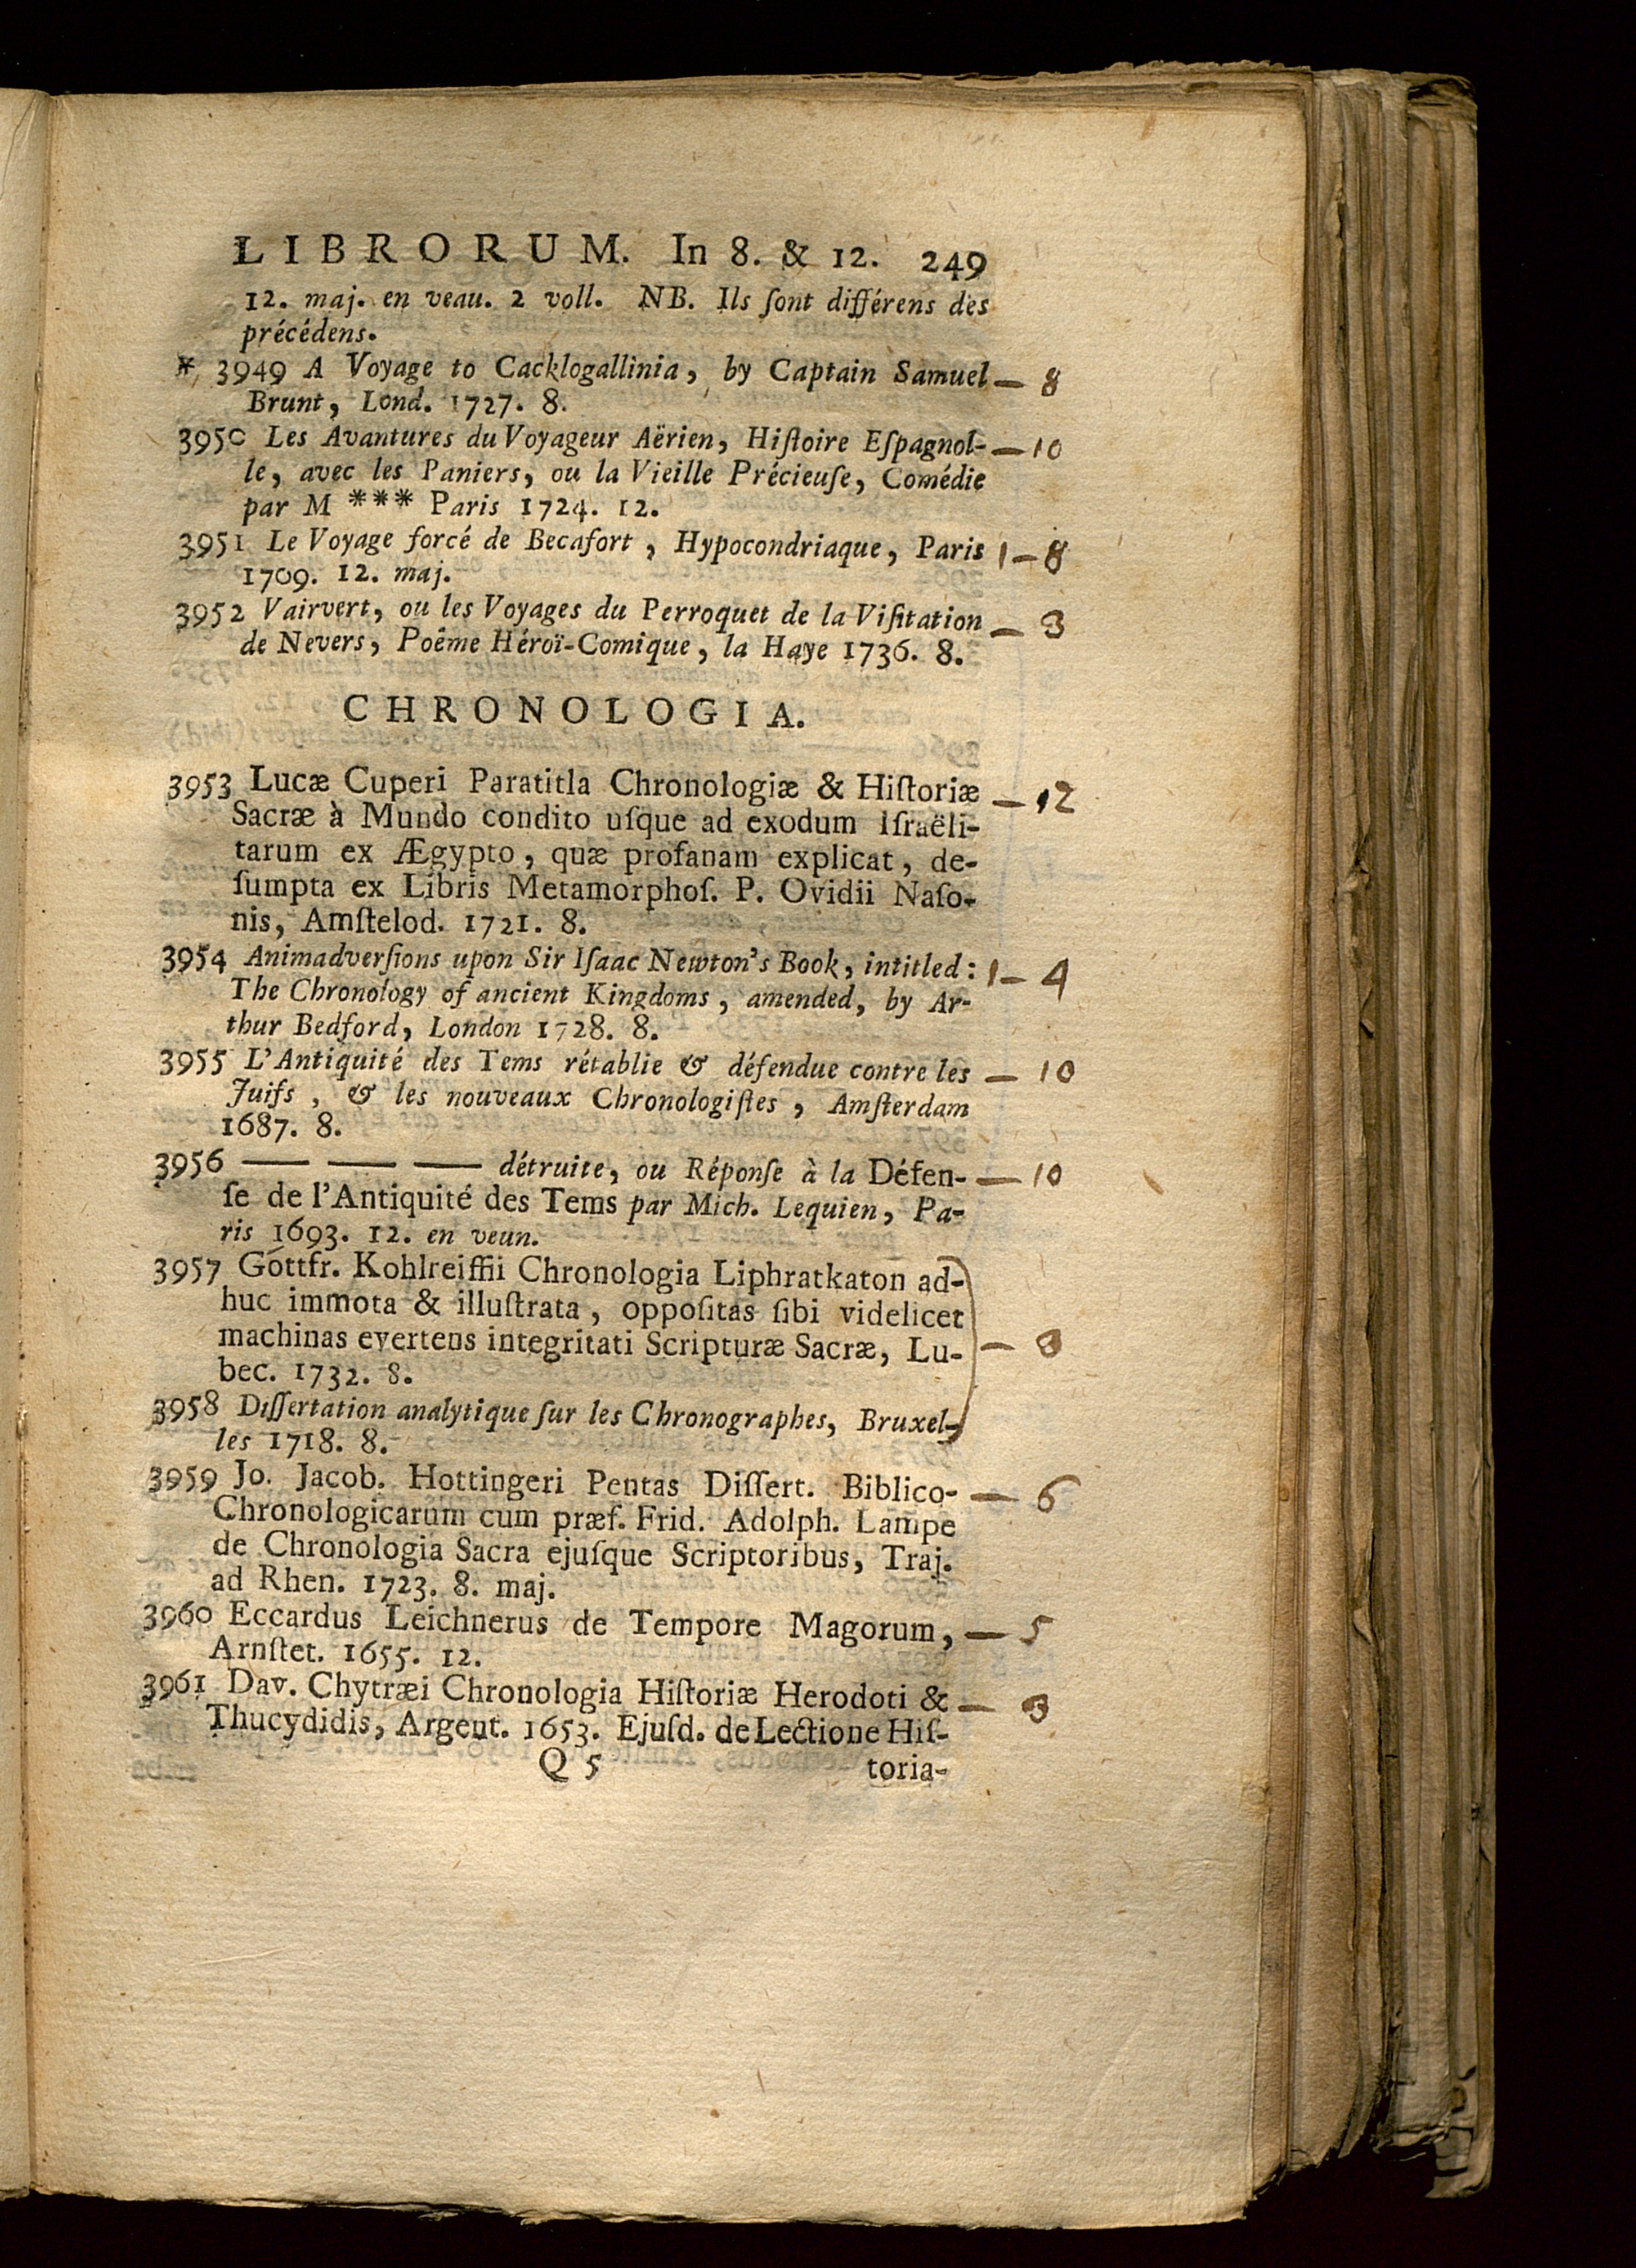 LIBRORUM. In 8. & 12. 249
12. maj. en veau. 2 voll. NB. Ils ſont différens des
précédens.
* 3949 A Voyage to Cacklogallinia, by Captain Samuel — 8
Brunt, Lond. 1727. 8.
3950 Les Avantures du Voyageur Aërien, Hiſtoire Eſpagnol- — 10
le, avec les Paniers, ou la Vieille Précieuſe, Comédie
par M *** Paris 1724. 12.
3951 Le Voyage forcé de Becafort, Hypocondriaque, Paris 1 — 8
1709. 12. maj.
3952 Vairvert, ou les Voyages du Perroquet de la Viſitation — 3
de Nevers, Poême Héroï-Comique, la Haye 1736. 8.
CHRONOLOGIA.
3953 Lucæ Cuperi Paratitla Chronologiæ & Hiſtoriæ — 12
Sacræ à Mundo condito uſque ad exodum Iſraëli-
tarum ex Ægypto, quæ profanam explicat, de-
ſumpta ex Libris Metamorphoſ. P. Ovidii Naſo-
nis, Amſtelod. 1721. 8.
3954 Animadverſions upon Sir Iſaac Newton's Book, intitled: 1 — 4
The Chronology of ancient Kingdoms, amended, by Ar-
thur Bedford, London 1728. 8.
3955 L'Antiquité des Tems rétablie & défendue contre les — 10
Juifs, & les nouveaux Chronologiſtes, Amſterdam
1687. 8.
3956 — — — détruite, ou Réponſe à la Défen- — 10
ſe de l'Antiquité des Tems par Mich. Lequien, Pa-
ris 1693. 12. en veun.
3957 Gottfr. Kohlreiffii Chronologia Liphratkaton ad-
huc immota & illuſtrata, oppoſitas ſibi videlicet
machinas evertens integritati Scripturæ Sacræ, Lu- — 8
bec. 1732. 8.
3958 Diſſertation analytique ſur les Chronographes, Bruxel-
les 1718. 8.
3959 Jo. Jacob. Hottingeri Pentas Diſſert. Biblico- — 6
Chronologicarum cum præf. Frid. Adolph. Lampe
de Chronologia Sacra ejuſque Scriptoribus, Traj.
ad Rhen. 1723. 8. maj.
3960 Eccardus Leichnerus de Tempore Magorum, — 5
Arnſtet. 1655. 12.
3961 Dav. Chytræi Chronologia Hiſtoriæ Herodoti & — 3
Thucydidis, Argent. 1653. Ejuſd. de Lectione Hiſ-
Q 5 toria-